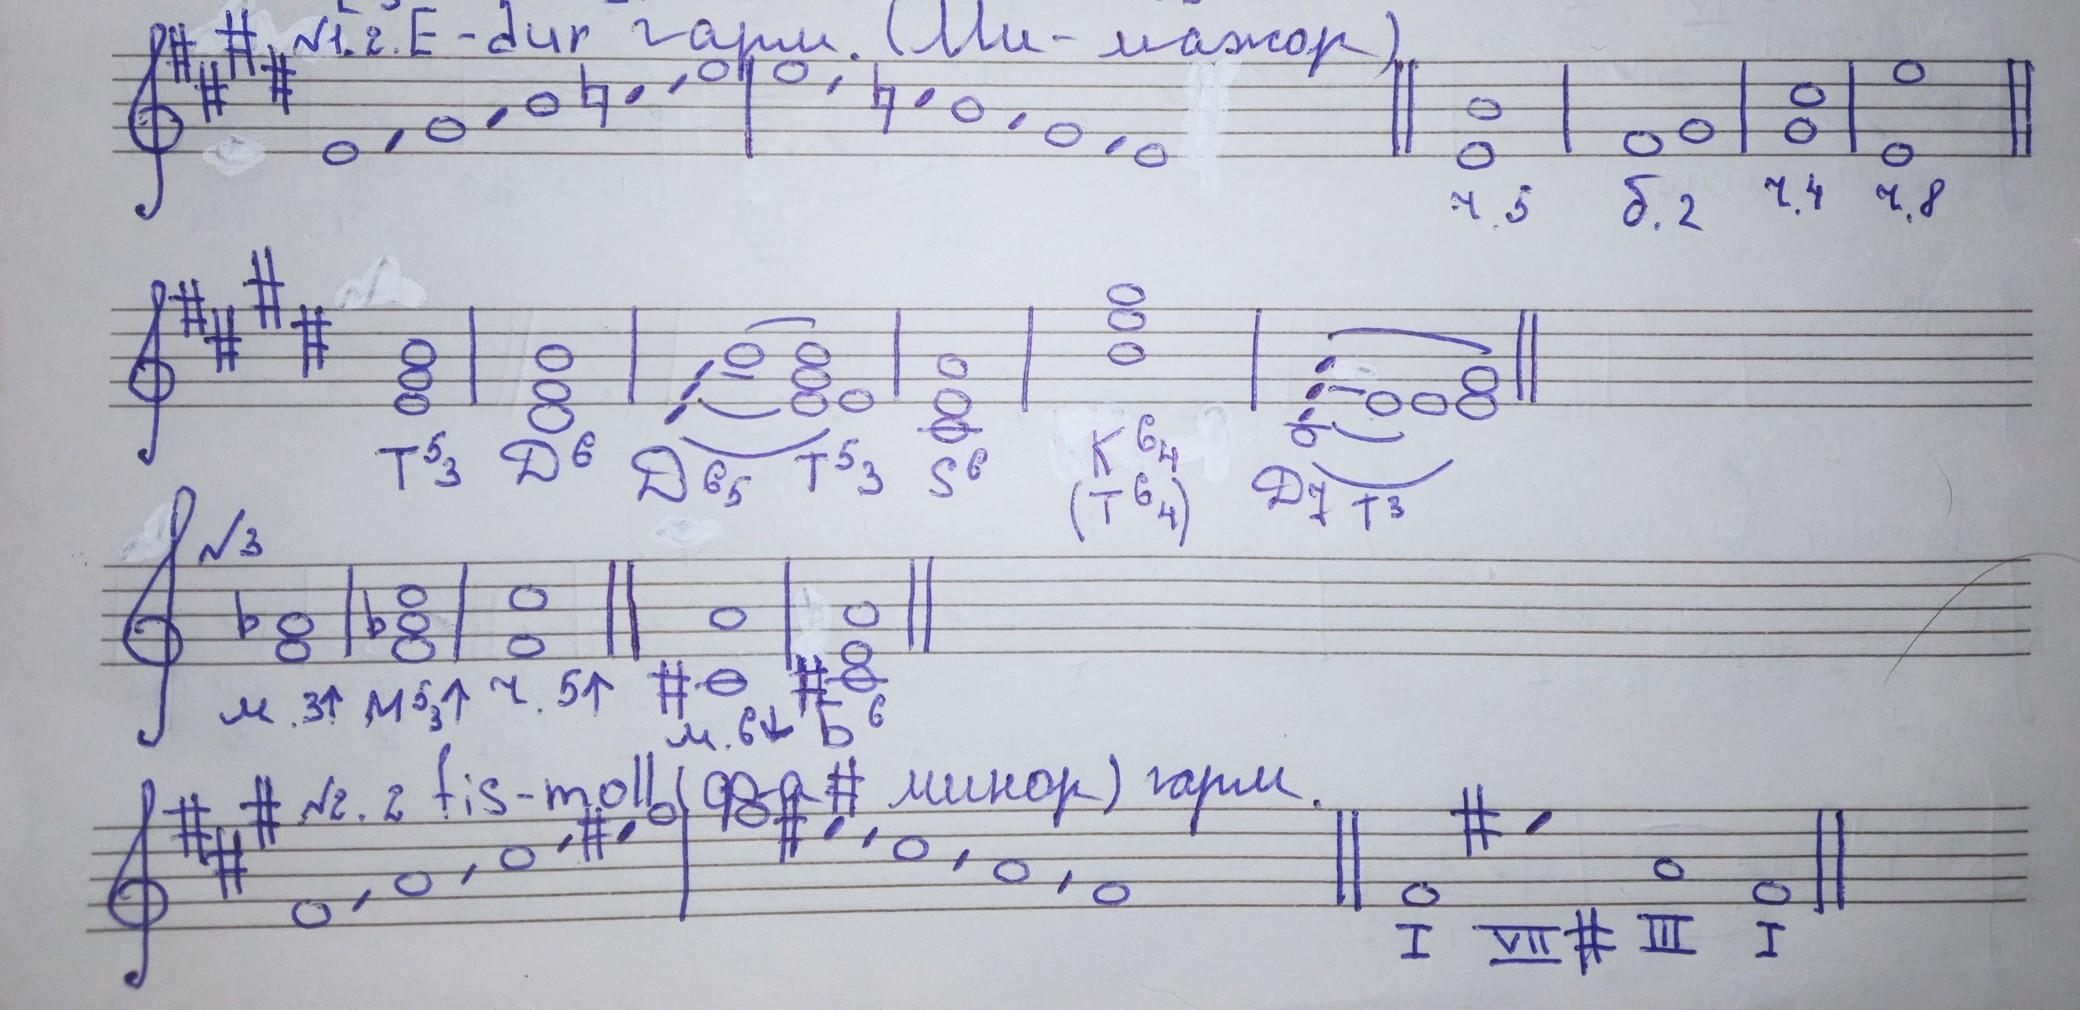 №1.2. E-dur гарм. (Ми-мажор)
ч.5 б.2 ч.4 ч.8
T53 Д6 Д65 T53 S6 К64 (T64) Д7 T3
№3
м.3↑ М53↑ ч.5↑ м.6↓ Б6
№2.2 fis-moll (фа# минор) гарм.
I VII# III I